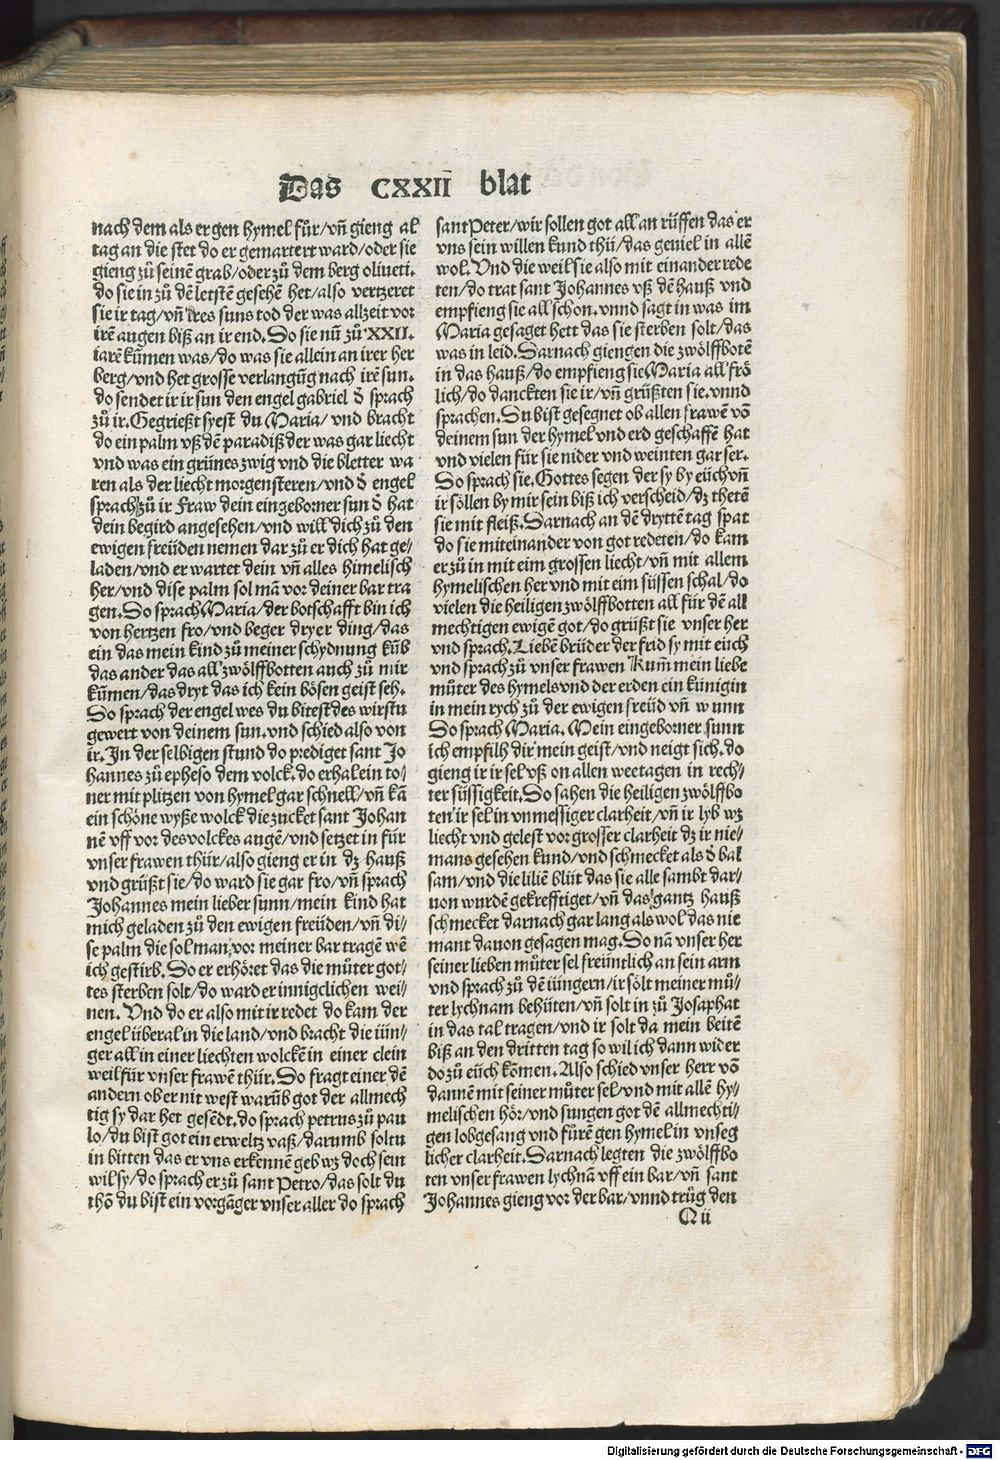 Das CXXII blat
nach dem als er gen hymel für/vñ gieng al
tag an die stet do er gemartert ward/oder sie
gieng zů seinẽ grab/oder zů dem berg oliueti.
do sie in zů dẽ letstẽ gesehẽ het/also vertzeret
sie ir tag/vñ ires suns tod der was allzeit vor
irẽ augen biß an ir end. So sie nũ zů XXII.
iarẽ kũmen was/do was sie allein an irer her
berg/vnd het grosse verlangũg nach irẽ sun.
do sendet ir ir sun den engel gabriel ď sprach
zů ir. Gegrießt syest du Maria/ vnd bracht
do ein palm vß dẽ paradiß der was gar liecht
vnd was ein grünes zwig vnd die bletter wa
ren als der liecht morgensteren/vnd ď engel
sprach zů ir Fraw dein eingeborner sun ď hat
dein begird angesehen/vnd will dich zů den
ewigen freüden nemen dar zů er dich hat ge/
laden/vnd er wartet dein vñ alles himelisch
her/vnd dise palm sol mã vor deiner bar tra
gen. So sprach Maria/der botschafft bin ich
von hertzen fro/vnd beger dryer ding/das
ein das mein kind zů meiner schydnung kũb
das ander das all zwölffbotten auch zů mir
kũmen/das dryt das ich kein bösen geist seh.
So sprach der engel wes du bitest des wirstu
gewert von deinem sun. vnd schied also von
ir. In der selbigen stund do prediget sant Jo
hannes zů epheso dem volck. do erhal ein to/
ner mit plitzen von hymel gar schnell/vñ kã
ein schöne wyße wolck die zucket sant Johan
nẽ vff vor des volckes augẽ/vnd setzet in für
vnser frawen thür/also gieng er in dz hauß
vnd grüßt sie/do ward sie gar fro/vñ sprach
Johannes mein lieber sunn/mein kind hat
mich geladen zů den ewigen freüden/vñ di/
se palm die sol man vor meiner bar tragẽ wẽ
ich gestirb. So er erhöret das die můter got/
tes sterben solt/do ward er innigclichen wei/
nen. Vnd do er also mit ir redet do kam der
engel überal in die land/vnd bracht die iün/
ger all in einer liechten wolckẽ in einer clein
weil für vnser frawẽ thür. So fragt einer dẽ
andern ob er nit west warũb got der allmech
tig sy dar het gesẽdt. do sprach petrus zů pau
lo/du bist got ein erweltz vaß/darumb soltu
in bitten das er vns erkennẽ geb wz doch sein
wil sy/do sprach er zů sant Petro/das solt du
thõ du bist ein vorgãger vnser aller do sprach
sant Peter/wir sollen got all an rüffen das er
vns sein willen kund thü/das geuiel in allẽ
wol. Vnd die weil sie also mit einander rede
ten/do trat sant Johannes vß dẽ hauß vnd
empfieng sie all schon. vnnd sagt in was im
Maria gesaget hett das sie sterben solt/das
was in leid. Darnach giengen die zwölffbotẽ
in das hauß/do empfieng sie Maria all frö
lich/do danckten sie ir/vñ grüßten sie. vnnd
sprachen. Du bist gesegnet ob allen frawẽ võ
deinem sun der hymel vnd erd geschaffẽ hat
vnd vielen für sie nider vnd weinten gar ser.
So sprach sie. Gottes segen der sy by eüch vñ
ir söllen by mir sein biß ich verscheid/dz thetẽ
sie mit fleiß. Darnach an dẽ dryttẽ tag spat
do sie miteinander von got redeten/do kam
er zů in mit eim grossen liecht/vñ mit allem
hymelischen her vnd mit eim süssen schal/do
vielen die heiligen zwölffbotten all für dẽ all
mechtigen ewigẽ got/do grüßt sie vnser her
vnd sprach. Liebẽ brüder der frid sy mit eüch
vnd sprach zů vnser frawen Kum̃ mein liebe
můter des hymels vnd der erden ein künigin
in mein rych zů der ewigen freüd vñ wunn
So sprach Maria. Mein eingeborner sunn
ich empfilh dir mein geist/vnd neigt sich. do
gieng ir ir sel vß on allen weetagen in rech/
ter süssigkeit. So sahen die heiligen zwölffbo
ten ir sel in vnmessiger clarheit/vñ ir lyb wz
liecht vnd gelest vor grosser clarheit dz ir nie/
mans gesehen kund/vnd schmecket als ď bal
sam/vnd die liliẽ blüt das sie alle sambt dar/
uon wurdẽ gekrefftiget/vñ das gantz hauß
schmecket darnach gar lang als wol das nie
mant dauon gesagen mag. So nã vnser her
seiner lieben můter sel freüntlich an sein arm
vnd sprach zů dẽ iüngern/ir sölt meiner mů/
ter lychnam behüten/vñ solt in zů Josaphat
in das tal tragen/vnd ir solt da mein beitẽ
biß an den dritten tag so wil ich dann wider
do zů eüch kõmen. Also schied vnser herr võ
dannẽ mit seiner můter sel/vnd mit allẽ hy/
melischen hör/vnd sungen got dẽ allmechti/
gen lobgesang vnd fürẽ gen hymel in vnseg
licher clarheit. Darnach legten die zwölffbo
ten vnser frawen lychnã vff ein bar/vñ sant
Johannes gieng vor der bar/vnnd trůg den
Q ii
Digitalisierung gefördert durch die Deutsche Forschungsgemeinschaft - DFG